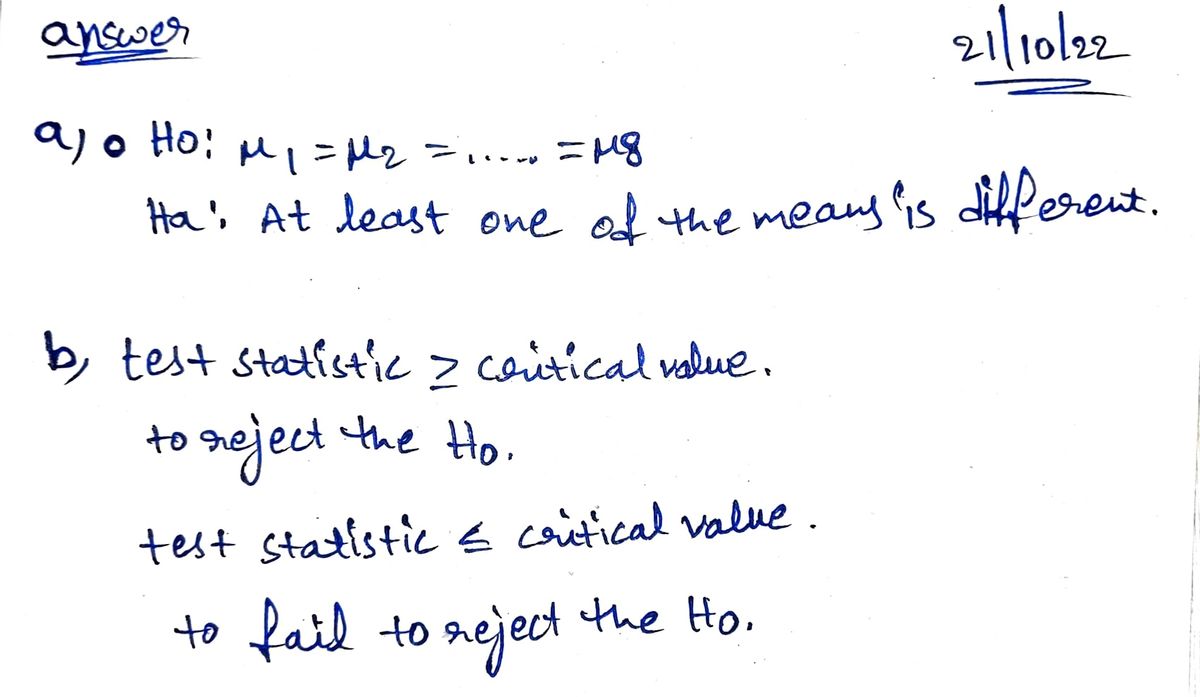 answer
21/10/22
a) o Ho: μ1 = μ2 = ...... = μ8
Ha: At least one of the means is different.
b, test statistic ≥ critical value.
to reject the Ho.
test statistic ≤ critical value.
to fail to reject the Ho.